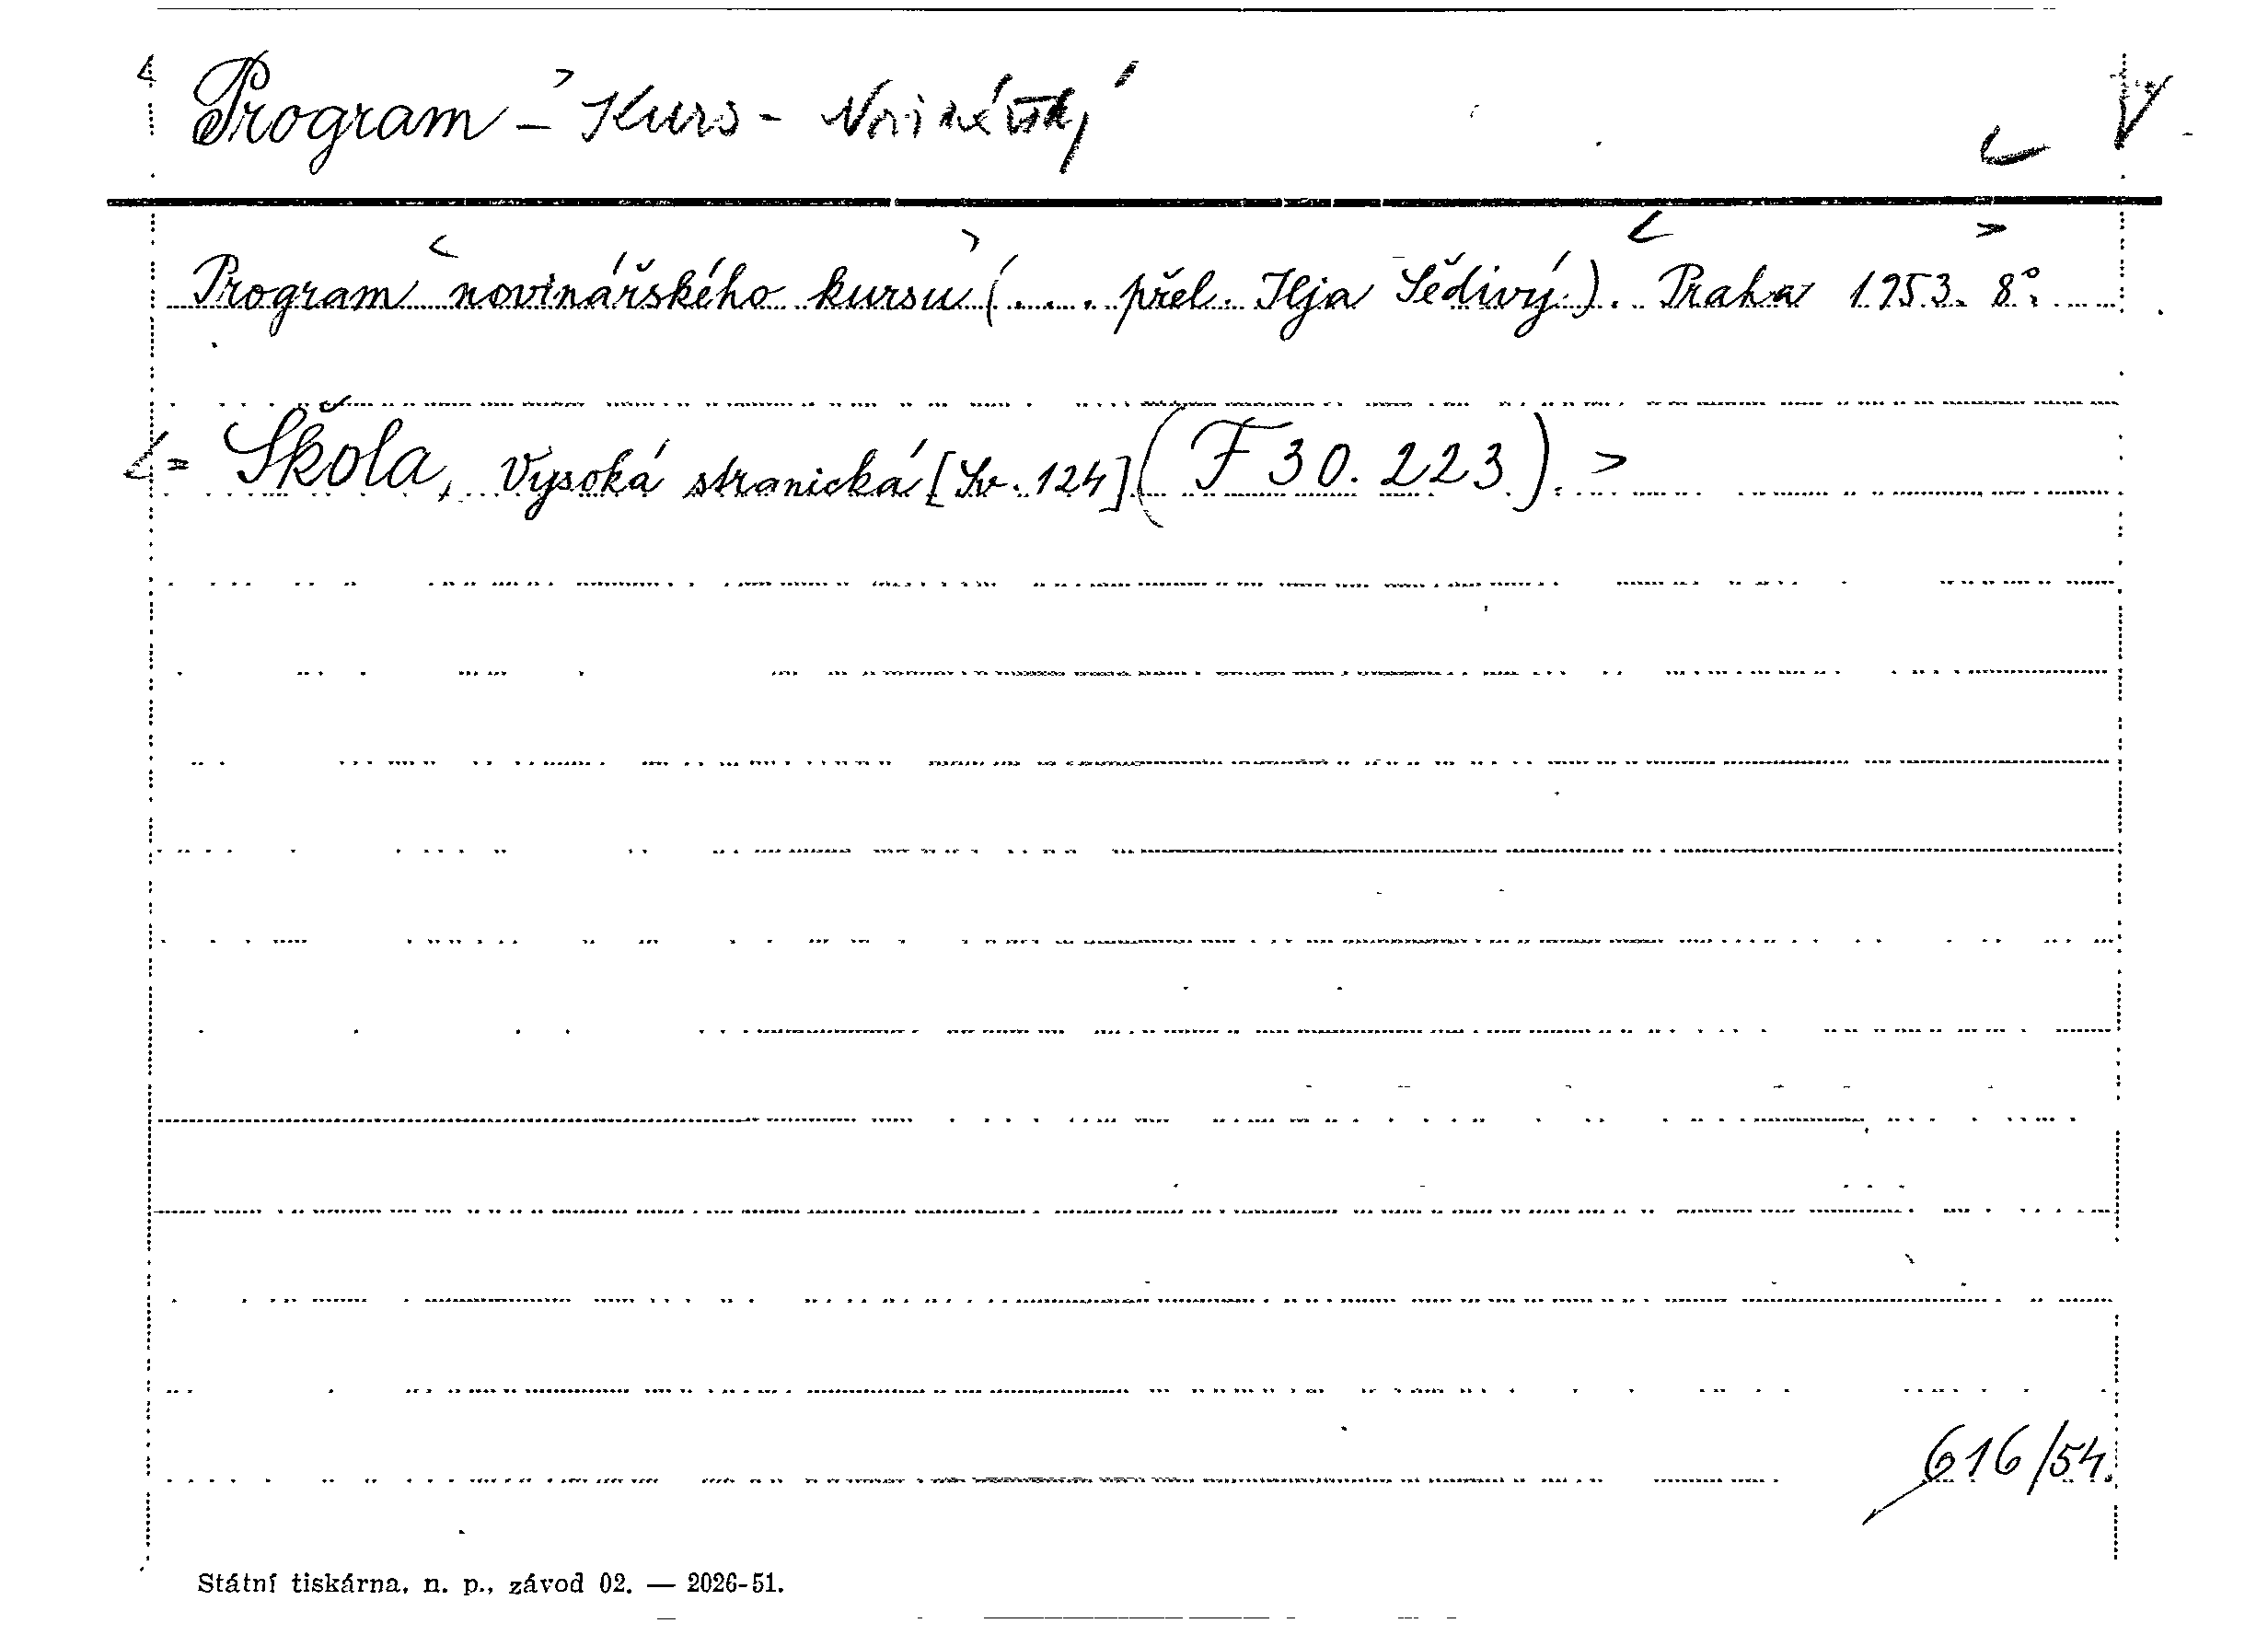 < Program - > Kurs - Novinářský
Program < novinářského kursu > (... přel. Ilja Šědivý). < Praha 1953. > 8°.
<= Škola, Vysoká stranická [Sv. 124] (F 30.223). >
616/54.
Státní tiskárna, n. p., závod 02. — 2026-51.